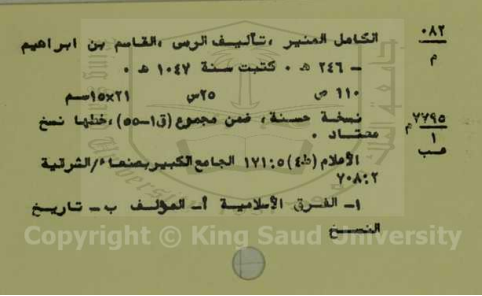 ٠٨٢
م
الكامل المنير ،تأليف الرسى ،القاسم بن ابراهيم
ـ ٢٤٦ هـ . كتبت سنة ١٠٤٧ هـ .
١١٠ ص ٢٥س ٢١×١٥سم
٧٧٩٥ م
١
عب
نسخة حسنة، ضمن مجموع (ق١-٥٥)،خطها نسخ
معتاد .
الأعلام (ط٤) ١٧١:٥ الجامع الكبير بصنعاء/الشرقية
٧٠٨:٢
١ـ الفرق الأسلامية أـ المؤلف ب ـ تاريخ
النسخ
Copyright © King Saud University